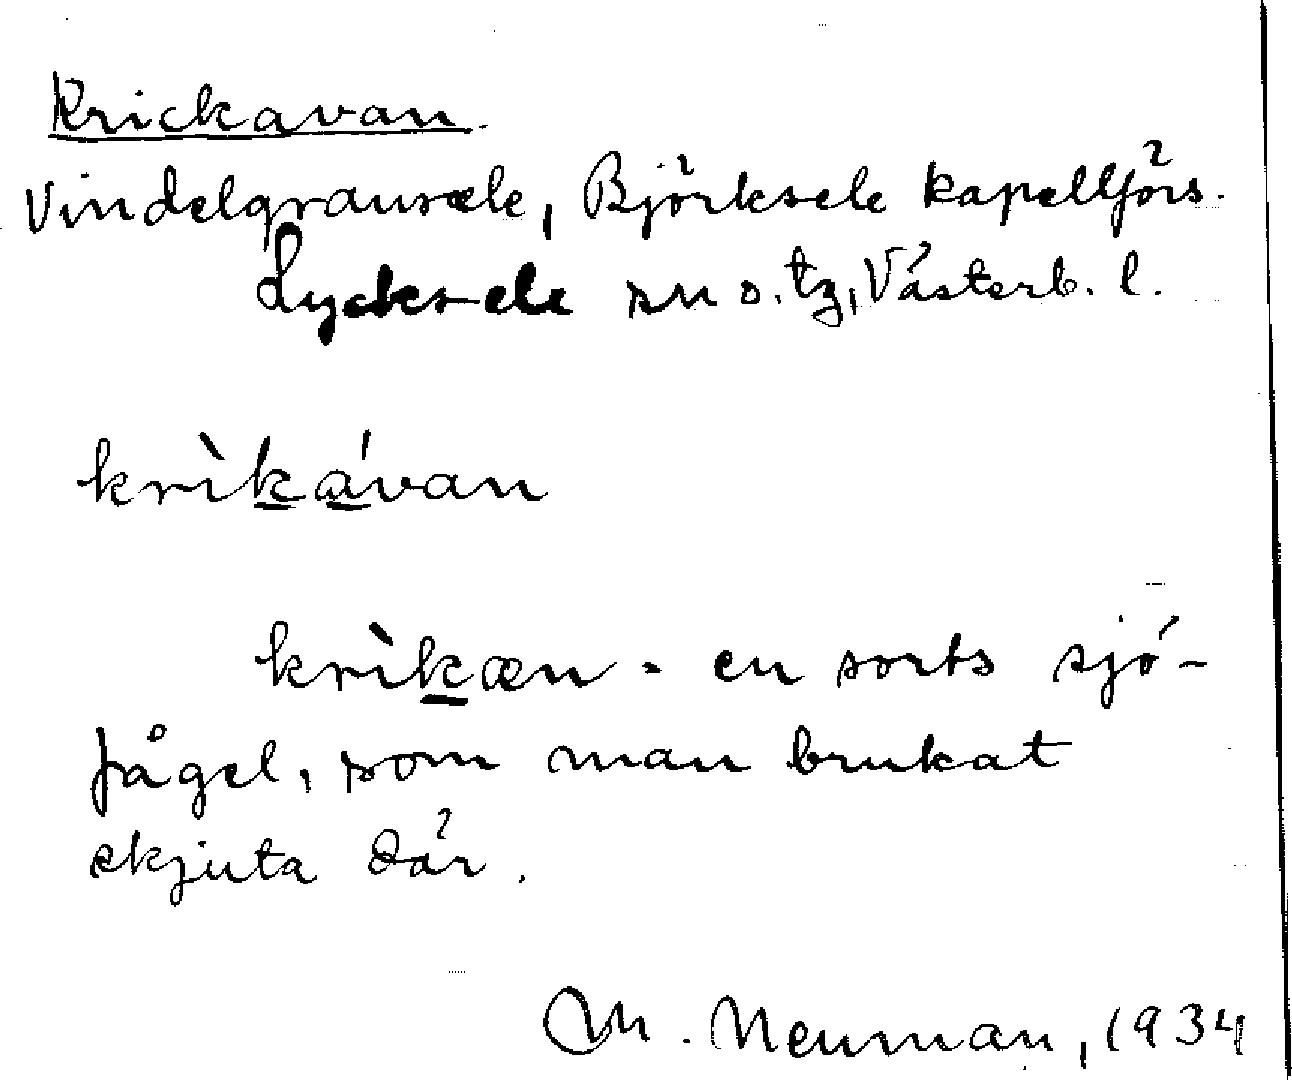 Krickavan.
Vindelgransele, Björksele kapellförs.
Lycksele sn o. tg, Västerb. l.
krìkávan
krìkæn = en sorts sjö-
fågel, som man brukat
skjuta där.
M. Neuman, 1934